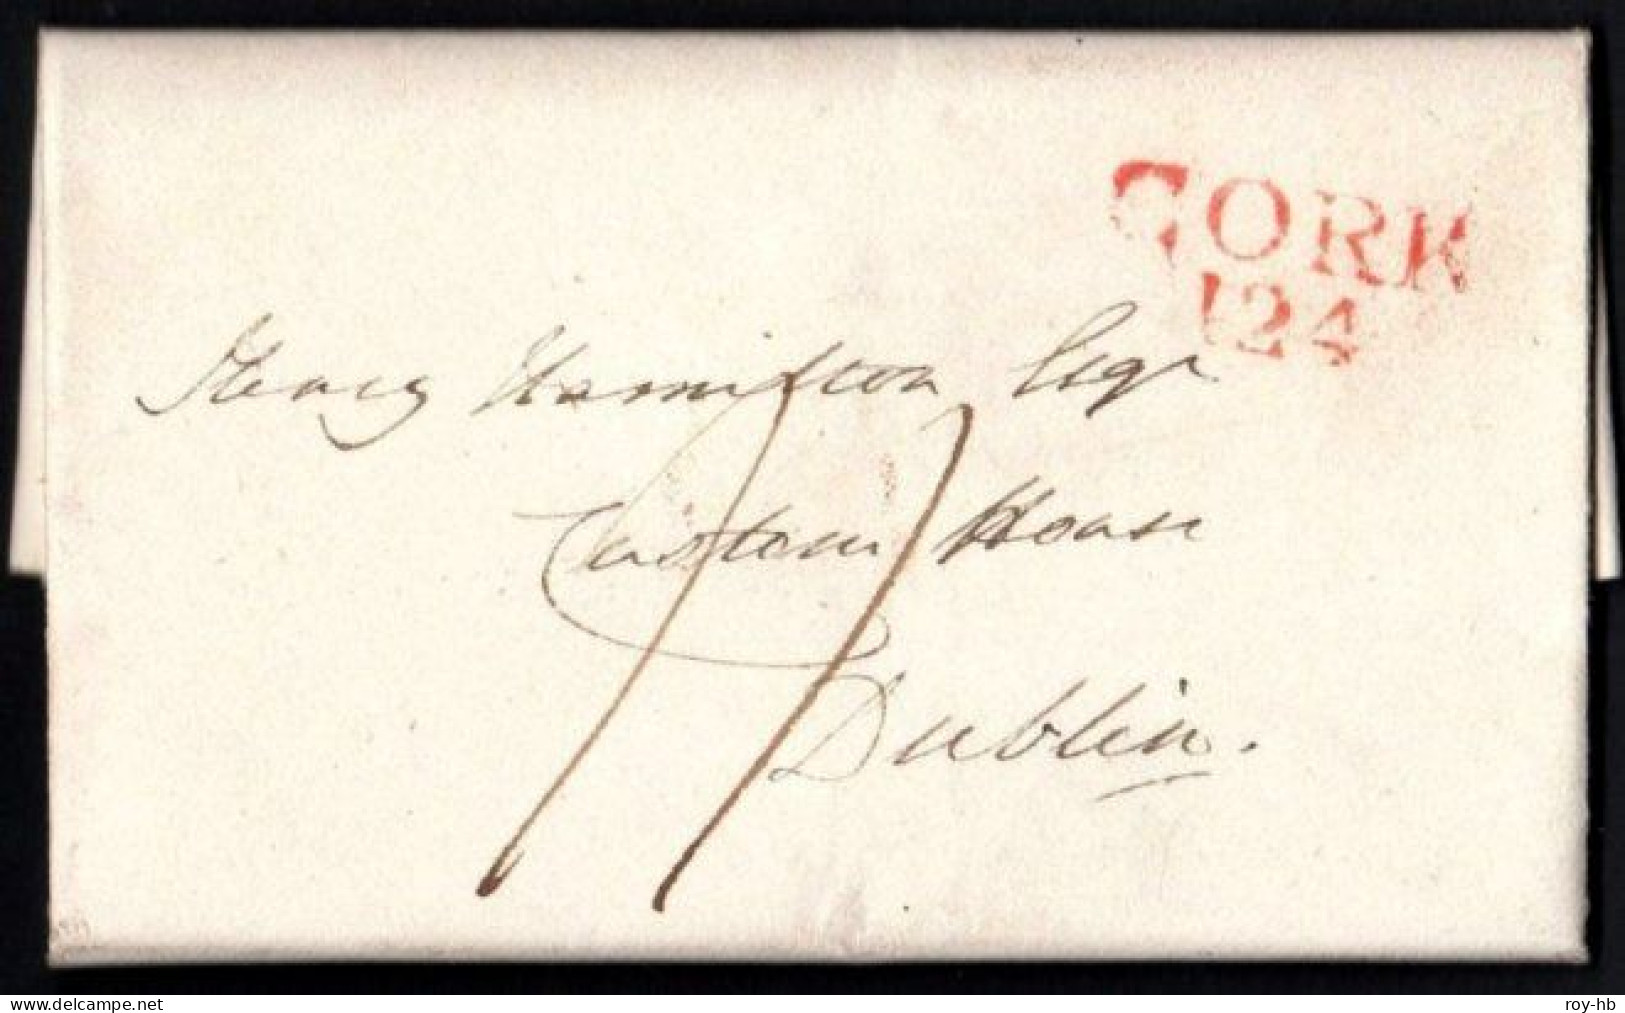 CORK
124
Henry Hamilton Esqr
Custom House
Dublin.
11
delcampe.net
roy-hb